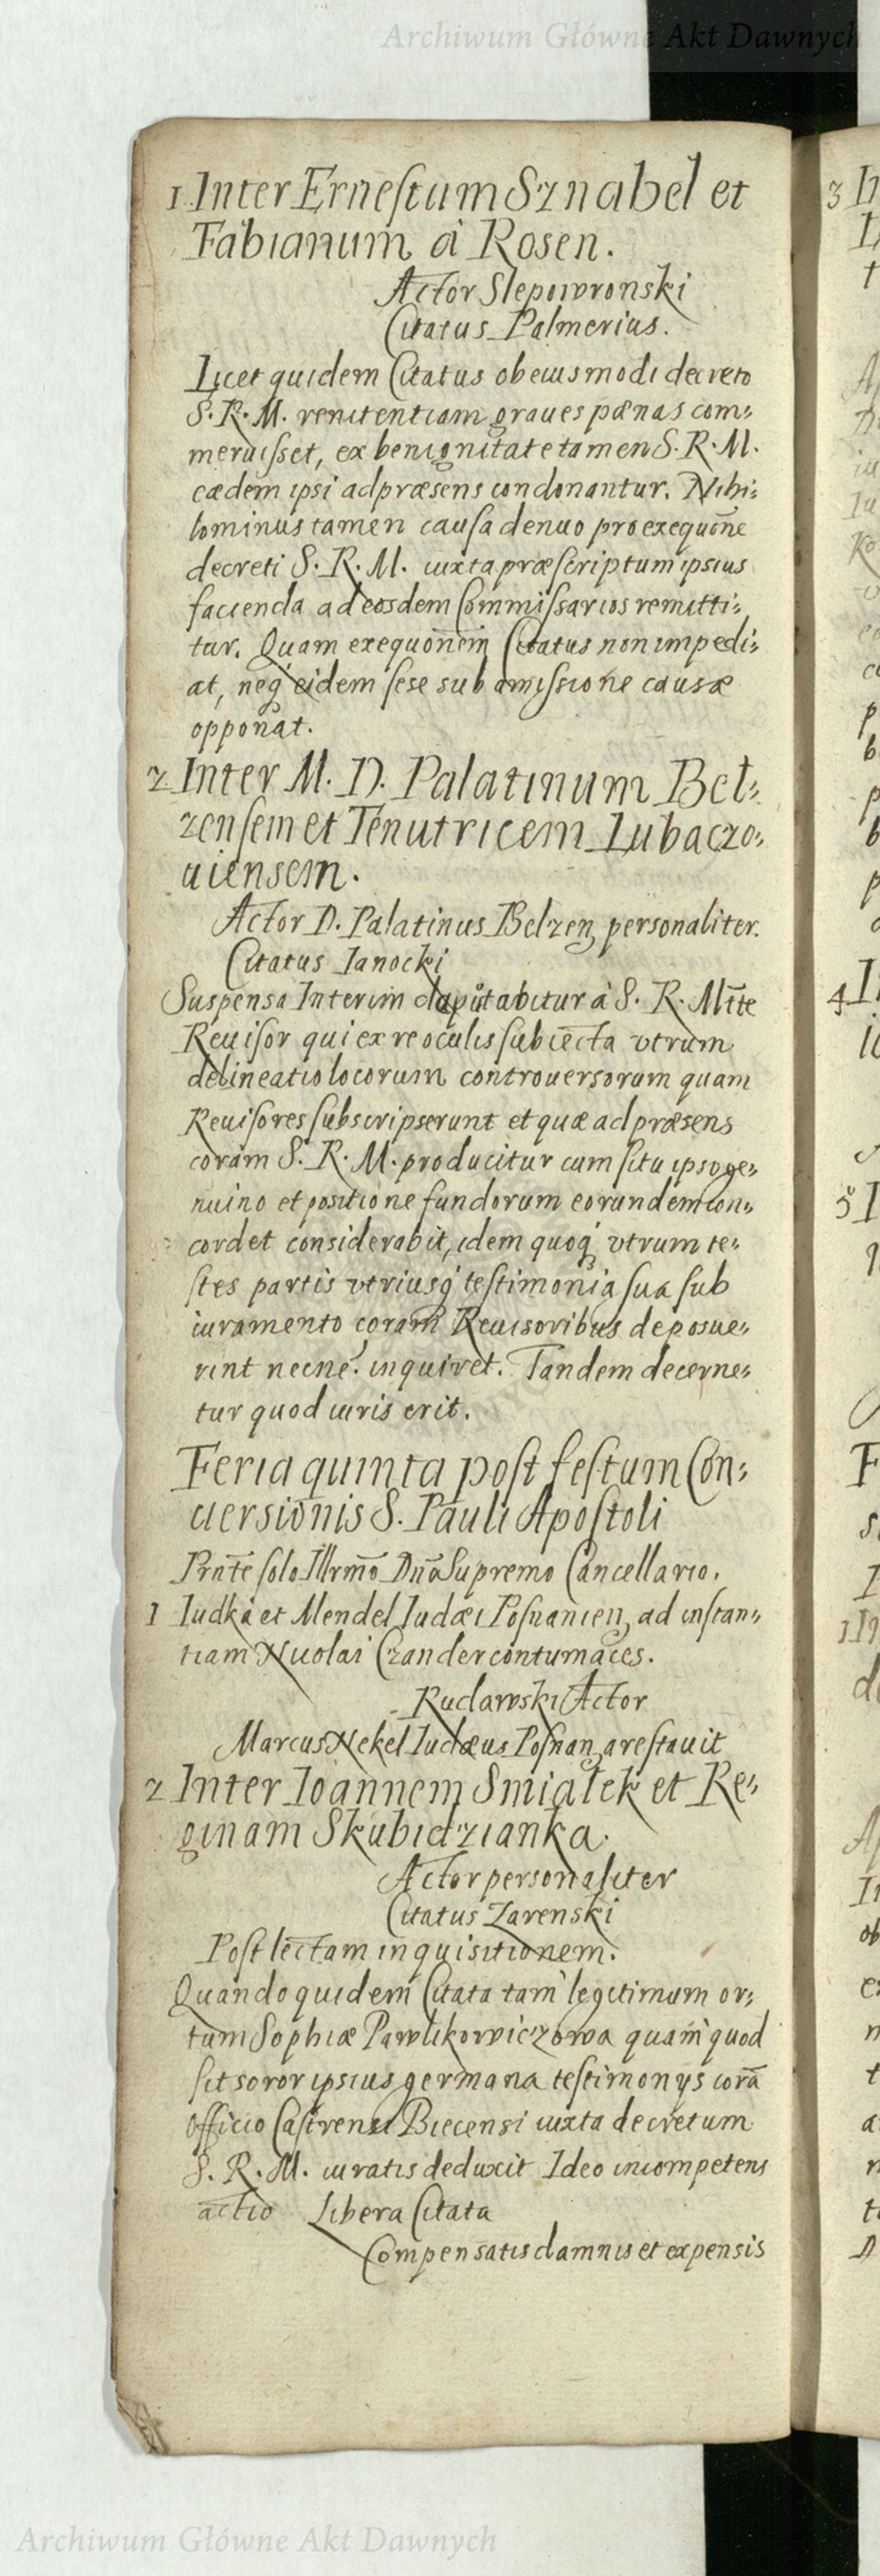 Archiwum Główne Akt Dawnych
1 Inter Ernestum Sznabel et
Fabianum à Rosen.
Actor Slepowronski
Citatus Palmerius.
Licet quidem Citatus ob eiusmodi decreto
S. R. M. renitentiam graues pænas com:
meruisset, ex benignitate tamen S. R. M.
eædem ipsi ad præsens condonantur. Nihi:
lominus tamen causa denuo pro exequōne
decreti S. R. M. iuxta præscriptum ipsius
facienda ad eosdem Commissarios remitti:
tur. Quam exequōnem Citatus non impedi:
at, neq́ eidem sese sub amissione causæ
opponat.
2 Inter M. D. Palatinum Bel:
zensem et Tenutricem Lubaczo:
uiensem.
Actor D. Palatinus Belzen, personaliter.
Citatus Ianocki
Suspensa Interim deputabitur à S. R. Mtte
Reuisor qui ex re oculis subiecta vtrum
delineatio locorum controuersorum quam
Reuisores subscripserunt et quæ ad præsens
coram S. R. M. producitur cum situ ipso ge:
nuino et positione fundorum eorundem con:
cordet considerabit, idem quoq́ vtrum te:
stes partis vtriusq́ testimonia sua sub
iuramento coram Reuisoribus deposue:
rint necne? inquiret. Tandem decerne:
tur quod iuris erit.
Feria quinta post festum Con:
uersionis S. Pauli Apostoli
Prnte solo Illrmo Dno Supremo Cancellario.
1 Iudka et Mendel Iudæi Posnanien, ad instan:
tiam Nicolai Czander contumaces.
Rudawski Actor
Marcus Nekel Iudæus Posnan, arestauit
2 Inter Ioannem Smiałek et Re:
ginam Skubidzianka.
Actor personaliter
Citatus Zarenski
Post lectam inquisitionem.
Quandoquidem Citata tam legitimum or:
tum Sophiæ Pawlikowiczowa quam quod
sit soror ipsius germana testimonys corā
officio Castrensi Biecensi iuxta decretum
S. R. M. iuratis deduxit Ideo incompetens
actio Libera Citata
Compensatis damnis et expensis
Archiwum Główne Akt Dawnych